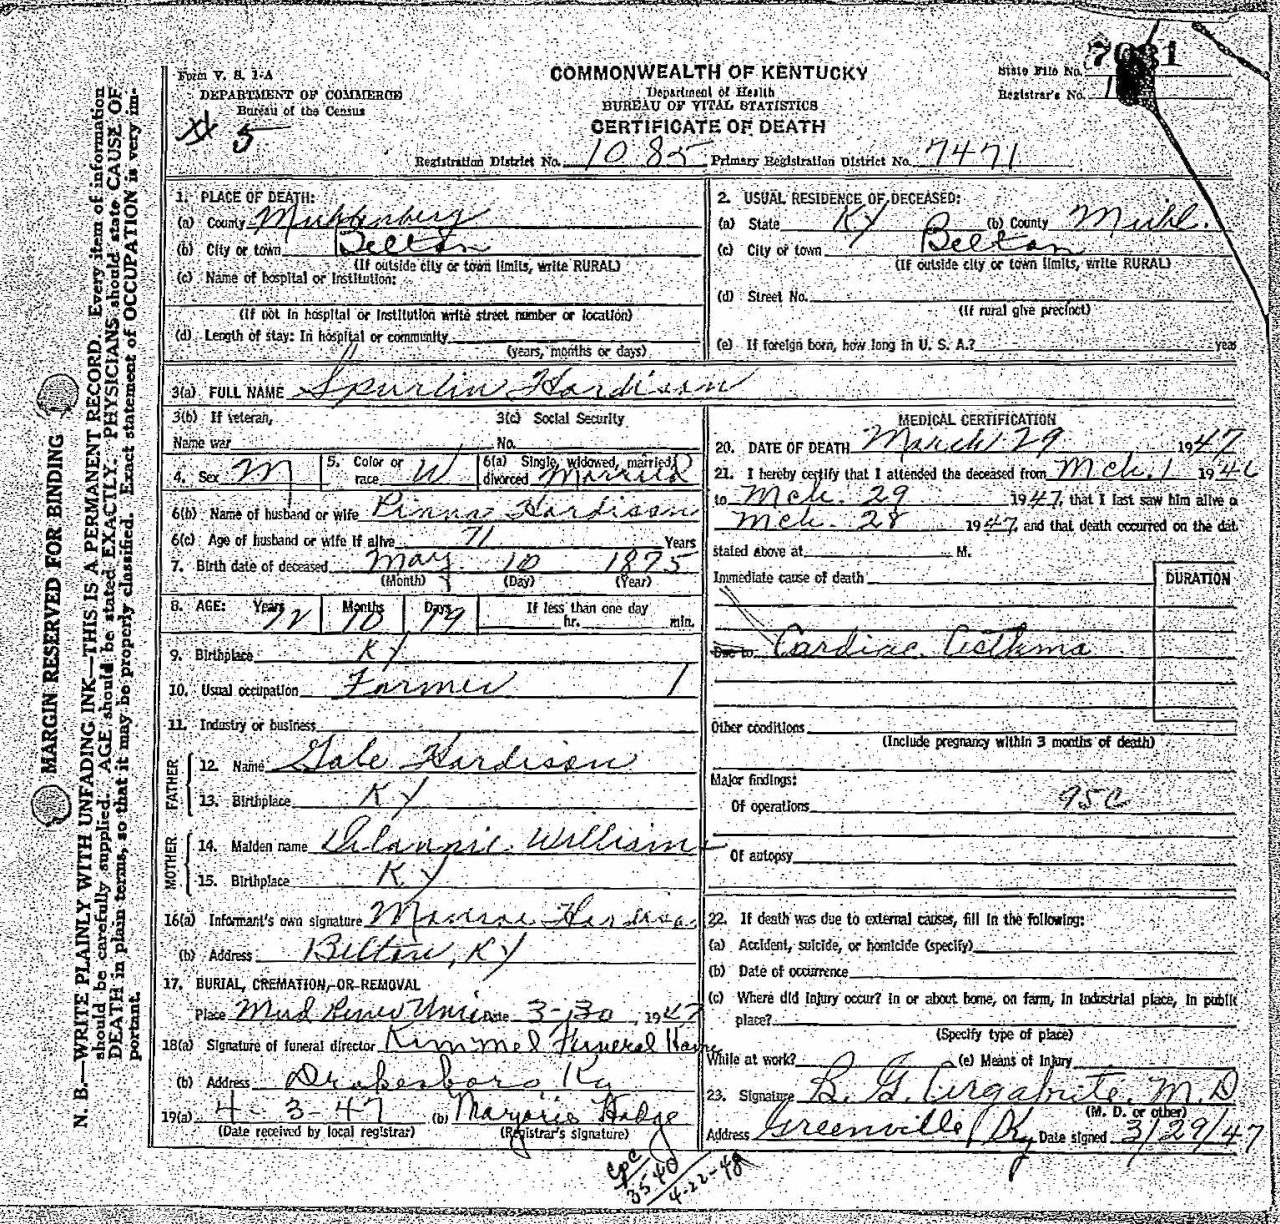 Form V. S. 1-A
DEPARTMENT OF COMMERCE
Bureau of the Census
# 5
COMMONWEALTH OF KENTUCKY
Department of Health
BUREAU OF VITAL STATISTICS
CERTIFICATE OF DEATH
State File No. 7081
Registrar's No. 1
Registration District No. 1085 Primary Registration District No. 7471
MARGIN RESERVED FOR BINDING
N. B.—WRITE PLAINLY WITH UNFADING INK—THIS IS A PERMANENT RECORD. Every item of information
should be carefully supplied. AGE should be stated EXACTLY. PHYSICIANS should state CAUSE OF
DEATH in plain terms, so that it may be properly classified. Exact statement of OCCUPATION is very im-
portant.
1. PLACE OF DEATH:
(a) County Muhlenberg
(b) City or town Belton
(If outside city or town limits, write RURAL)
(c) Name of hospital or institution:
(If not in hospital or institution write street number or location)
(d) Length of stay: In hospital or community
(years, months or days)
2. USUAL RESIDENCE OF DECEASED:
(a) State Ky (b) County Muhl.
(c) City or town Belton
(If outside city or town limits, write RURAL)
(d) Street No.
(If rural give precinct)
(e) If foreign born, how long in U. S. A.? year
3(a) FULL NAME Spurlin Hardison
3(b) If veteran, 3(c) Social Security
Name war No.
4. Sex M 5. Color or race W 6(a) Single, widowed, married, divorced Married
6(b) Name of husband or wife Pinna Hardison
6(c) Age of husband or wife if alive 71 Years
7. Birth date of deceased May 10 1875
(Month) (Day) (Year)
8. AGE: Years Months Days If less than one day
10 19 hr. min.
9. Birthplace Ky
10. Usual occupation Farmer 1
11. Industry or business
FATHER
12. Name Gabe Hardison
13. Birthplace Ky
MOTHER
14. Maiden name William
15. Birthplace Ky
16(a) Informant's own signature Monroe Hardison
(b) Address Belton, Ky
17. BURIAL, CREMATION, OR REMOVAL
Place Mud River Union Date 3-30 1947
18(a) Signature of funeral director Kimmel Funeral Home
(b) Address Drakesboro Ky
19(a) 4-3-47 (b) Marjorie Hodge
(Date received by local registrar) (Registrar's signature)
MEDICAL CERTIFICATION
20. DATE OF DEATH March 29 1947
21. I hereby certify that I attended the deceased from Mch. 1 1946
to Mch. 29 1947, that I last saw him alive o
Mch. 28 1947, and that death occurred on the dat
stated above at M.
Immediate cause of death DURATION
Due to Cardiac Asthma
Other conditions
(Include pregnancy within 3 months of death)
Major findings:
Of operations 95c
Of autopsy
22. If death was due to external causes, fill in the following:
(a) Accident, suicide, or homicide (specify)
(b) Date of occurrence
(c) Where did injury occur? In or about home, on farm, in industrial place, in public
place?
(Specify type of place)
While at work? (e) Means of Injury
23. Signature Argabrite, M.D
(M. D. or other)
Address Greenville, Ky Date signed 3/29/47
cpc
3540
4-22-48